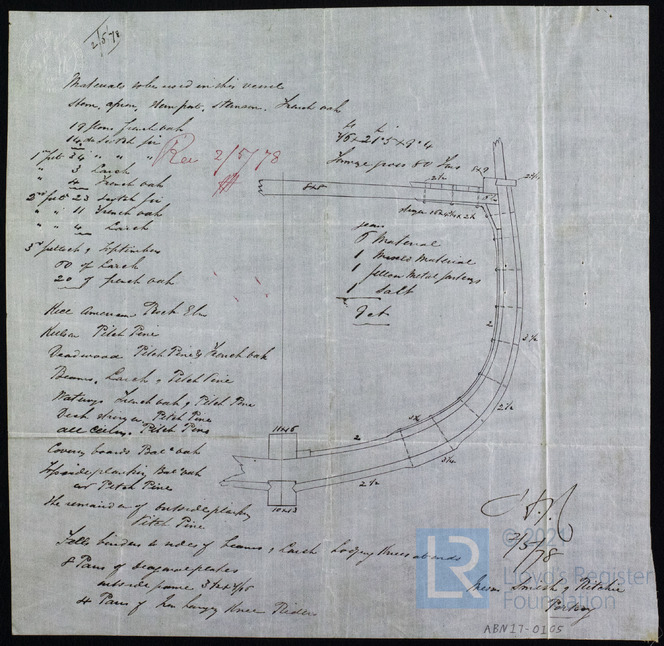 2/5/78
Materials to be used in this vessel
Stem, apron, Stern post, Transom. French oak
19 floors French oak
14 do Scotch fir
1st futs 34 " " "
" 3 Larch
" 4 French oak
2nd futs 23 Scotch fir
" " 11 French oak
" " 4 Larch
3rd futtock & Toptimbers
60 of Larch
20 of French oak
Rec 2/5/78
Keel American Rock Elm
Kelson Pitch Pine
Deadwood Pitch Pine & French oak
Beams, Larch & Pitch Pine
Waterways French oak & Pitch Pine
Deck stringer Pitch Pine
all ceiling Pitch Pine
Covering boards oak
Topside planking oak
or Pitch Pine
the remainder of outside planking
Pitch Pine
to sides of beams & Larch Lodging Knees at ends
8 Pairs of diagonal plates
outside frame
4 Pairs of Iron hanging Knee Riders
21.5 × 9.4
Tonnage gross 80 Tons
8×8
2 1/2
years
8 Material
1 Mixed Material
1 yellow metal fastenings
1 Salt
2
3 1/2
2 1/2
3 1/4
2
2 1/2
10×13
2/5/78
Messrs Smith & Ritchie
ABN17-0105
LR
© 202
Lloyd's Register
Foundation